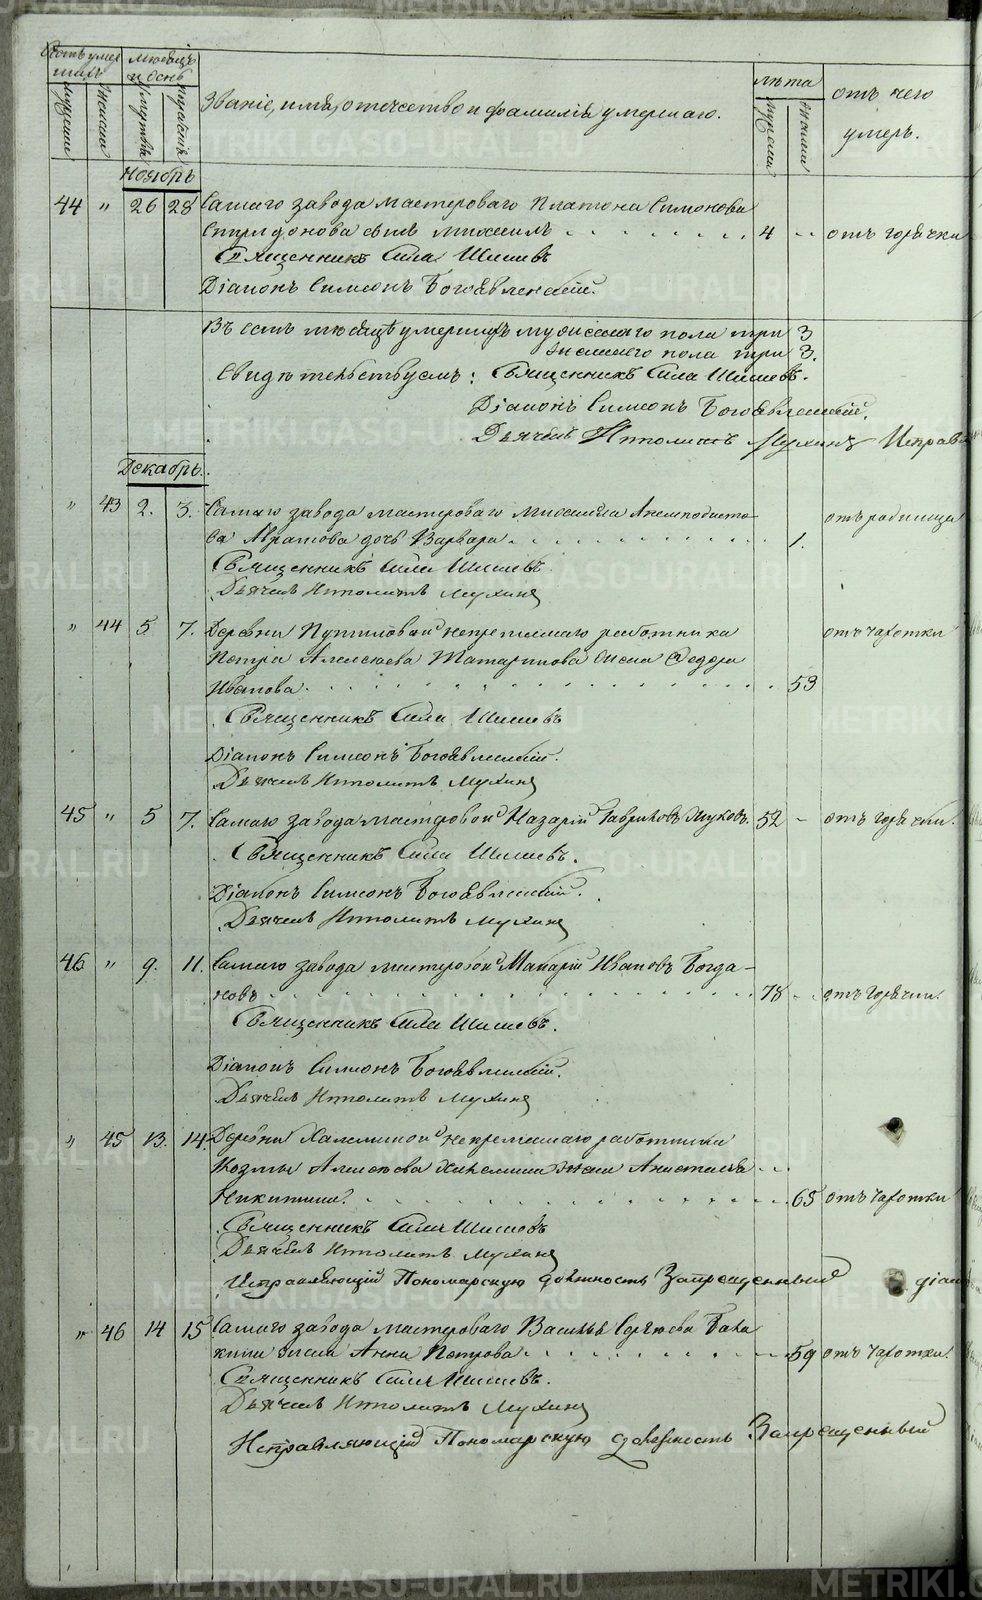 Счетъ умер
шихъ
мѣсяцъ
и день
Званіе, имя, отечество и фамилія умершаго.
лѣта
отъ чего
умеръ.
мужеска
женска
смерти
погребенія
мужеска
женска
Ноябрь
44 " 26 28 Самаго завода мастероваго Платона Симонова
Спиридонова сынъ Михаилъ 4 " отъ горячки
Священникъ Сила Шишевъ
Діаконъ Симеонъ Богоявленскій.
Въ семъ мѣсяцѣ умершихъ мужескаго пола три 3
женскаго пола три 3.
Свидѣтельствуемъ: Священникъ Сила Шишевъ.
Діаконъ Симеонъ Богоявленскій.
Дьячекъ Ипполитъ Мухинъ Исправ
Декабрь.
" 43 2. 3. Самаго завода мастероваго Михаила
ва дочь Варвара 1. отъ родимца
Священникъ Сила Шишевъ.
Дьячекъ Ипполитъ Мухинъ
" 44 5 7. Деревни Путиловой непремѣннаго работника отъ чахотки
Петра Алексѣева Татаринова жена Ѳедора
Иванова 53
Священникъ Сила Шишевъ
Діаконъ Симеонъ Богоявленскій.
Дьячекъ Ипполитъ Мухинъ
45 " 5 7. Самаго завода мастеровой Назарій Гавриловъ 52 - отъ горячки.
Священникъ Сила Шишевъ.
Діаконъ Симеонъ Богоявленскій.
Дьячекъ Ипполитъ Мухинъ
46 " 9. 11. Самаго завода мастеровой Макарій Ивановъ Богда-
новъ 78 - отъ горячки.
Священникъ Сила Шишевъ.
Діаконъ Симеонъ Богоявленскій.
Дьячекъ Ипполитъ Мухинъ
" 45 13. 14. Деревни непремѣннаго работника
Козмы Алексѣева жена Анастасія
Никитина 65 отъ чахотки
Священникъ Сила Шишевъ
Дьячекъ Ипполитъ Мухинъ
Исправляющій Пономарскую должность Запрещенный діак
" 46 14 15 Самаго завода мастероваго Василья Сергѣева
жена Анна Петрова 59 отъ чахотки.
Священникъ Сила Шишевъ.
Дьячекъ Ипполитъ Мухинъ
Исправляющій Пономарскую должность Запрещенный
METRIKI.GASO-URAL.RU